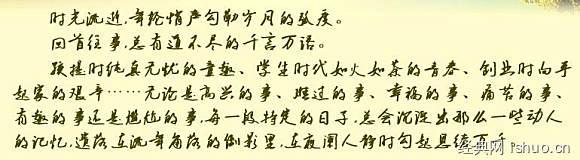 时光流逝，年轮悄声勾勒岁月的弧度。
回首往事，总有道不尽的千言万语。
孩提时纯真无忧的童趣、学生时代如火如荼的青春、创业时白手
起家的艰辛……无论是高兴的事、难过的事、幸福的事、痛苦的事、
有趣的事还是尴尬的事，每一段特定的日子，总会沉淀出那么一些动人
的记忆，遗落在流年角落的倒影里，在夜阑人静时勾起思绪万千。
经典网 ishuo.cn